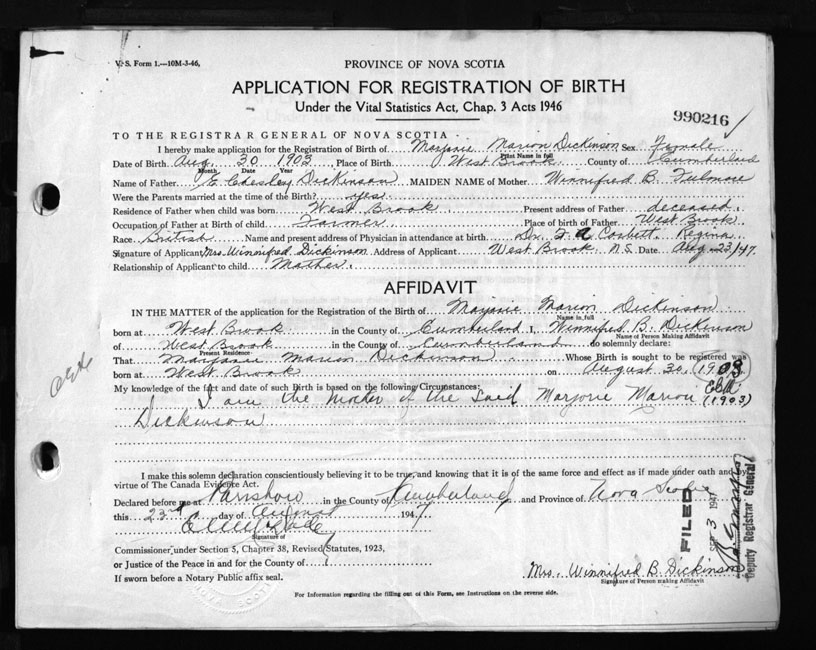 V. S. Form 1.—10M-3-46,
PROVINCE OF NOVA SCOTIA
APPLICATION FOR REGISTRATION OF BIRTH
Under the Vital Statistics Act, Chap. 3 Acts 1946
990216
TO THE REGISTRAR GENERAL OF NOVA SCOTIA
I hereby make application for the Registration of Birth of Marjorie Marion Dickinson Sex Female
Print Name in full
Date of Birth Aug 30 1903 Place of Birth West Brook County of Cumberland
Month Day Year
Name of Father E Chesley Dickinson MAIDEN NAME of Mother Winnifred B. Fulmore
Were the Parents married at the time of the Birth? yes
Residence of Father when child was born West Brook Present address of Father deceased
Occupation of Father at Birth of child Farmer Place of birth of Father West Brook
Race British Name and present address of Physician in attendance at birth Dr. F A Corbett Regina
Signature of Applicant Mrs Winnifred Dickinson Address of Applicant West Brook N.S. Date Aug 23/47.
Relationship of Applicant to child Mother.
AFFIDAVIT
IN THE MATTER of the application for the Registration of the Birth of Marjorie Marion Dickinson
Name in full
born at West Brook in the County of Cumberland I, Winnifred B. Dickinson
Name of Person Making Affidavit
of West Brook in the County of Cumberland do solemnly declare:
Present Residence
That Marjorie Marion Dickinson Whose Birth is sought to be registered was
born at West Brook on August 30 1903
My knowledge of the fact and date of such Birth is based on the following Circumstances:
I am the Mother of the Said Marjorie Marion (1903)
Dickinson
I make this solemn declaration conscientiously believing it to be true, and knowing that it is of the same force and effect as if made under oath and by
virtue of The Canada Evidence Act.
Declared before me at Parrsboro in the County of Cumberland and Province of Nova Scotia
this 23rd day of August 1947
Signature of
Commissioner under Section 5, Chapter 38, Revised Statutes, 1923,
or Justice of the Peace in and for the County of
If sworn before a Notary Public affix seal.
FILED
SEP 3 1947
Deputy Registrar General
Mrs. Winnifred B. Dickinson
Signature of Person making Affidavit
For Information regarding the filling out of this Form, see Instructions on the reverse side.